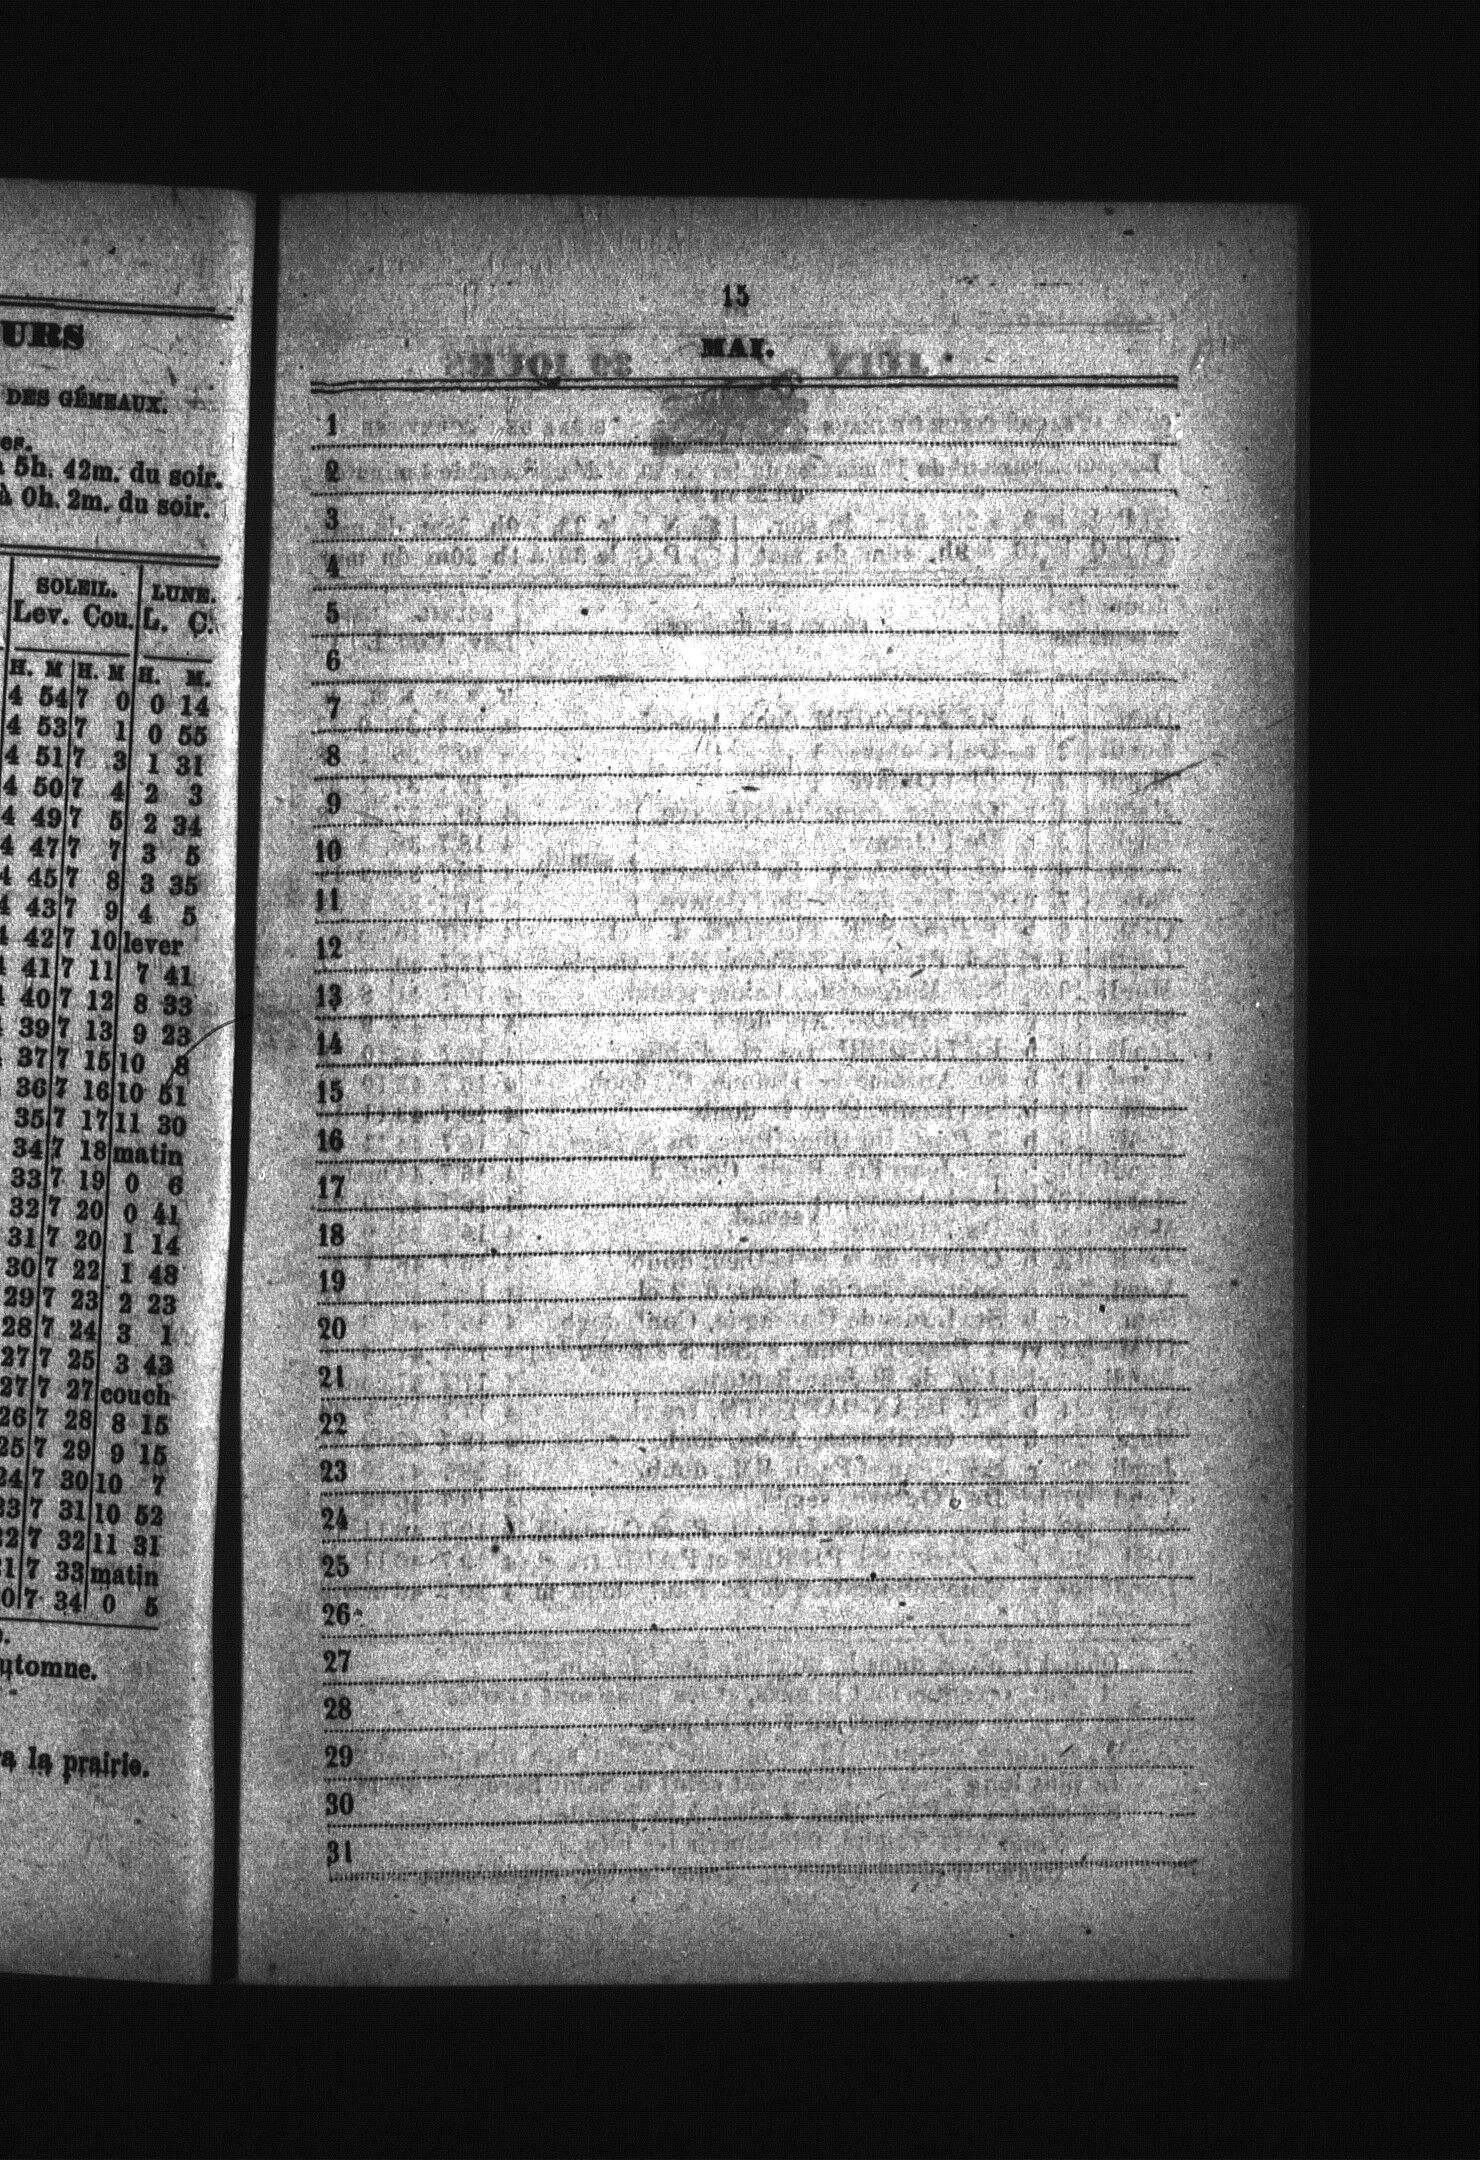 URS
DES GÉMEAUX.
es.
à 5h. 42m. du soir.
à 0h. 2m. du soir.
SOLEIL. LUNE.
Lev. Cou. L. C.
H. M H. M H. M.
4 54 7 0 0 14
4 53 7 1 0 55
4 51 7 3 1 31
4 50 7 4 2 3
4 49 7 5 2 34
4 47 7 7 3 5
4 45 7 8 3 35
4 43 7 9 4 5
4 42 7 10 lever
41 7 11 7 41
40 7 12 8 33
39 7 13 9 23
37 7 15 10 8
36 7 16 10 51
35 7 17 11 30
34 7 18 matin
33 7 19 0 6
32 7 20 0 41
31 7 20 1 14
30 7 22 1 48
29 7 23 2 23
28 7 24 3 1
27 7 25 3 43
27 7 27 couch
26 7 28 8 15
25 7 29 9 15
24 7 30 10 7
23 7 31 10 52
22 7 32 11 31
21 7 33 matin
0 7 34 0 5
utomne.
ra la prairie.
15
MAI.
1
2
3
4
5
6
7
8
9
10
11
12
13
14
15
16
17
18
19
20
21
22
23
24
25
26
27
28
29
30
31